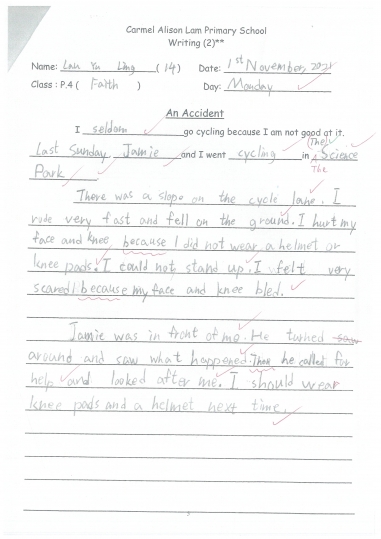 Carmel Alison Lam Primary School
Writing (2)**
Name: Lau Yu Ling (14) Date: 1st November, 2021
Class : P.4 ( Faith ) Day: Monday
An Accident
I seldom go cycling because I am not good at it.
Last Sunday, Jamie and I went cycling in (The) Science
The
Park
There was a slope on the cycle lane. I
rode very fast and fell on the ground. I hurt my
face and knee because I did not wear a helmet or
knee pads. I could not stand up. I felt very
scared because my face and knee bled.
Jamie was in front of me. He turned saw
around and saw what happened. Then he called for
help and looked after me. I should wear
knee pads and a helmet next time.